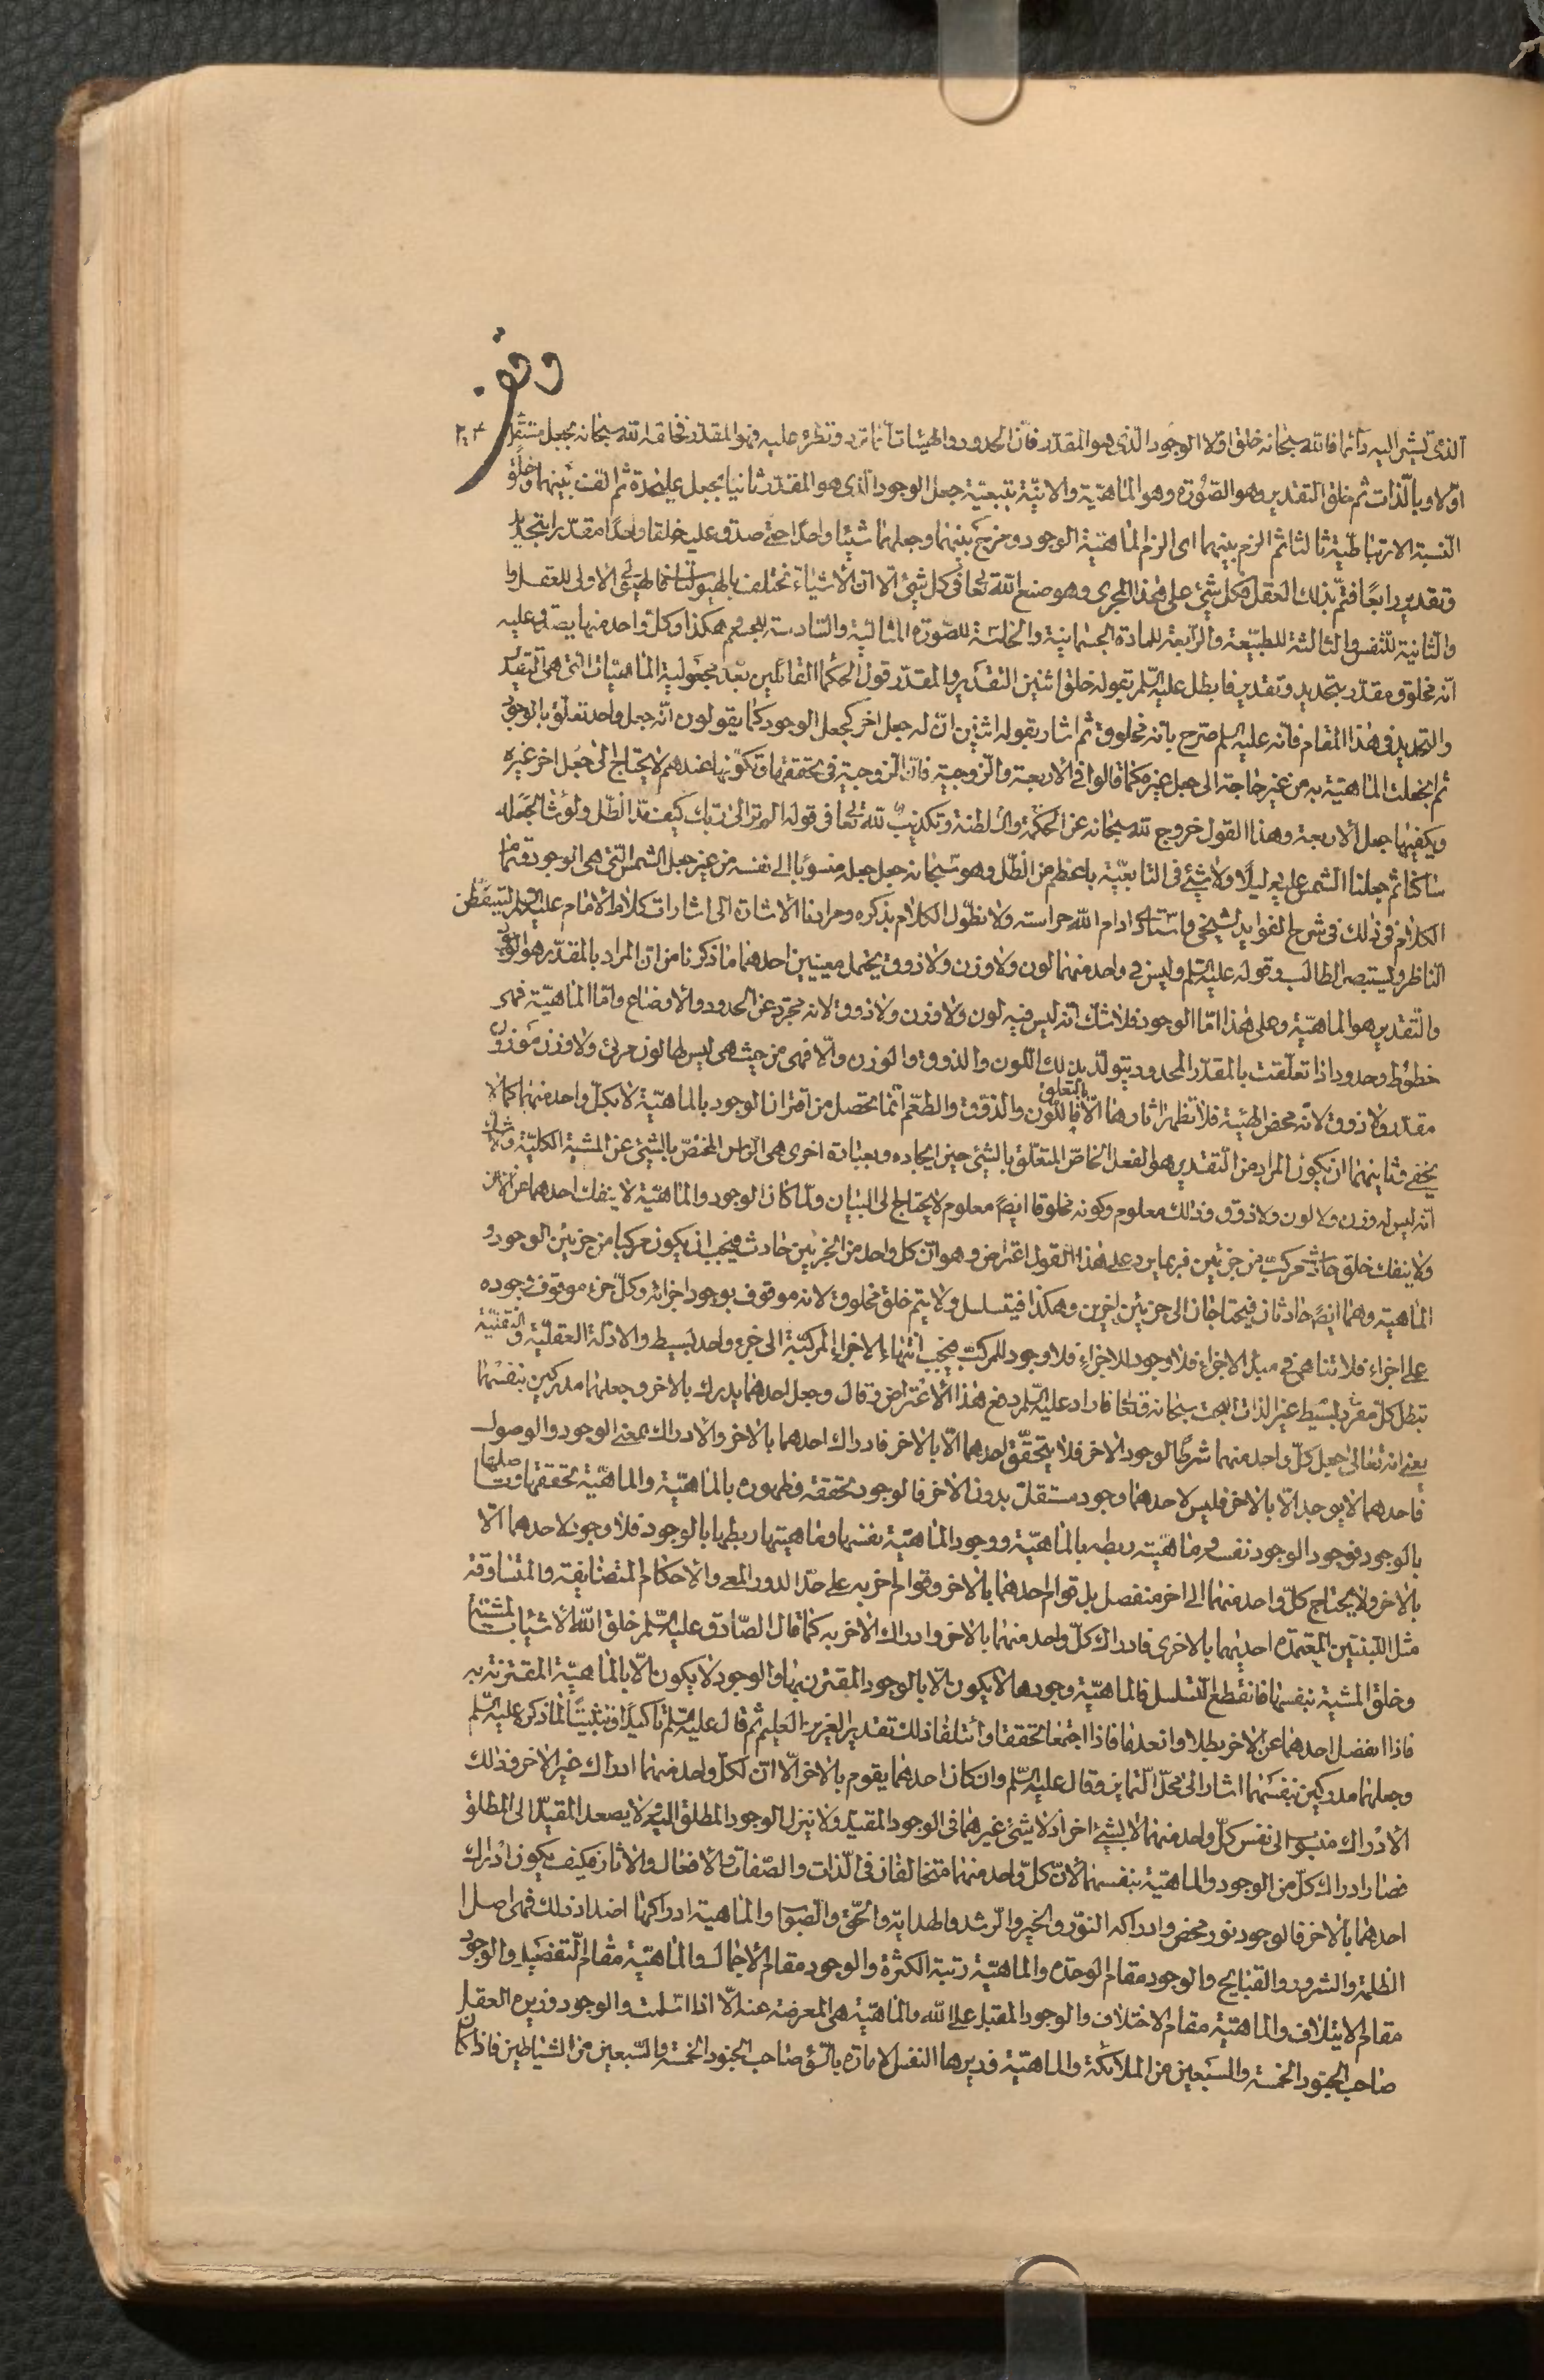 وقف
٢٠٤
الذى تشير اليه دائما فالله سبحانه خلق اولا الوجود الذى هو المقدر فان الحدود والهيئات انما ترد وتطرء عليه فهو المقدر فخلقه الله سبحانه بجعل مستقل
اولا وبالذات ثم خلق التقدير وهو الصورة وهو الماهية والانية بتبعية جعل الوجود الذى هو المقدر ثانيا بجعل عليحدة ثم الف بينهما وخلق
النسبة الارتباطية ثالثا ثم الزم بينهما اى الزم الماهية الوجود ومزج بينهما وجعلهما شيئا واحدا حتى صدق عليه خلقا واحدا مقدرا بتجديد
وتقدير رابعا فتم بذلك العقل فكل شئ على هذا المجرى وهو صنع الله تعالى فى كل شئ الا ان الاشياء تختلف بالهيولى فالهيولى الاولى للعقل
والثانية للنفس والثالثة للطبيعة والرابعة للمادة الجسمانية والخامسة للصورة المثالية والسادسة للجسم هكذا وكل واحد منها يصدق عليه
انه مخلوق مقدر بتحديد وتقدير فابطل عليه السلم بقوله خلق اثنين التقدير والمقدر قول الحكما القائلين بعدم مجعولية الماهيات التى هى التقدير
والتحديد فى هذا المقام فانه عليه السلم صرح بانه مخلوق ثم اشار بقوله اثنين ان له جعل اخر كجعل الوجود كما يقولون انه جعل واحد تعلق بالوجود
ثم انجعلت الماهية به من غير حاجة الى جعل غيره كما قالوا فى الاربعة والزوجية فان الزوجية فى تحققها وتكونها عندهم لا يحتاج الى جعل اخر غيره
ويكفيها جعل الاربعة وهذا القول خروج لله سبحانه عن الحكمة والسلطنة وتكذيب لله تعالى فى قوله الم تر الى ربك كيف مد الظل ولو شاء لجعله
ساكنا ثم جعلنا الشمس عليه دليلا ولا شئ فى التابعية باعظم من الظل وهو سبحانه جعل جعله منسوبا الى نفسه من غير جعل الشمس التى هى الوجود وتمام
الكلام فى ذلك فى شرح الفوايد لشيخى واستادى ادام الله حراسته ولا نطول الكلام بذكره ومرادنا الاشارة الى اشارات كلام الامام عليه السلم ليتيقظن
الناظر وليستبصر الطالب وقوله عليه السلم وليس فى واحد منهما لون ولا وزن ولا ذوق يحتمل معنيين احدهما ما ذكرنا من ان المراد بالمقدر هو الوجود
والتقدير هو الماهية وعلى هذا اما الوجود فلا شك انه ليس فيه لون ولا وزن ولا ذوق لانه مجرد عن الحدود والاوضاع واما الماهية فهى
خطوط وحدود اذا تعلقت بالمقدر المحدود يتولد بذلك اللون والذوق والوزن والا فهى من حيث هى ليس لها لون مرئى ولا وزن موزون
مقدر ولا ذوق لانه محض الهيئة فلا تظهر اثارها الا بالتعلق فاللون والذوق والطعم انما يحصل من اقتران الوجود بالماهية لا بكل واحد منهما كما لا
يخفى وثانيهما ان يكون المراد من التقدير هو الفعل الخاص المتعلق بالشئ حين ايجاده وبعبارة اخرى هى الراس المختص بالشئ عن المشية الكلية وشك
انه ليس له وزن ولا لون ولا ذوق وذلك معلوم وكونه مخلوقا ايضا معلوم لا يحتاج الى البيان ولما كان الوجود والماهية لا ينفك احدهما عن الاخر
ولا ينفك خلق حادث مركب من جزئين فربما يرد على هذا القول اعتراض وهو ان كل واحد من الجزئين حادث فيجب ان يكون مركبا من جزئين الوجود و
الماهية وهما ايضا حادثان فيحتاجان الى جزئين اخرين وهكذا فيتسلسل ولا يتم خلق مخلوق لانه موقوف بوجود اجزائه وكل جزء موقوف وجوده
على اجزاء فلا تناهى فى مبدء الاجزاء فلا وجود للاجزاء فلا وجود للمركب فيجب انتهاء الاجزاء المركبة الى جزء واحد بسيط والادلة العقلية والنقلية
تبطل كل مفرد بسيط غير الذات البحت سبحانه قطعا فاراد عليه السلم دفع هذا الاعتراض وقال وجعل احدهما يدرك بالاخر وجعلهما مدركين بنفسهما
يعنى انه تعالى جعل كل واحد منهما شرطا لوجود الاخر فلا يتحقق احدهما الا بالاخر فادراك احدهما بالاخر والادراك بمعنى الوجود والوصول
فاحدهما لا يوجد الا بالاخر فليس لاحدهما وجود مستقل بدون الاخر فالوجود تحققه وظهوره بالماهية والماهية تحققها وتاصلها
بالوجود فوجود الوجود نفسه وماهيته ربطه بالماهية ووجود الماهية نفسها وماهيتها ربطها بالوجود فلا وجود لاحدهما الا
بالاخر ولا يحتاج كل واحد منهما الى اخر منفصل بل قوام احدهما بالاخر وقوام اخر به على حد الدور المعى والاحكام المتضايفة والمتساوقة
مثل اللبنتين المعتمدة احديهما بالاخرى فادراك كل واحد منهما بالاخر وادراك الاخر به كما قال الصادق عليه السلم خلق الله الاشياء بالمشية
وخلق المشية بنفسها فانقطع التسلسل فالماهية وجودها لا يكون الا بالوجود المقترن بها والوجود لا يكون الا بالماهية المقترنة به
فاذا انفصل احدهما عن الاخر بطلا وانعدما فاذا اجتمعا تحققا وائتلفا ذلك تقدير العزيز العليم ثم قال عليه السلم تاكيدا وتثبيتا لما ذكره عليه السلم
وجعلهما مدركين بنفسهما اشار الى محل التمايز وقال عليه السلم وان كان احدهما يقوم بالاخر الا ان لكل واحد منهما ادراك غير الاخر وذلك
الادراك منسوب الى نفس كل واحد منهما لا بشئ اخر اذ لا شئ غيرهما فى الوجود المقيد ولا ينزل الوجود المطلق اليه ولا يصعد المقيد الى المطلق
فصار ادراك كل من الوجود والماهية بنفسهما لان كل واحد منهما متخالفان فى الذات والصفات والافعال والاثار فكيف يكون ادراك
احدهما بالاخر فالوجود نور محض وادراكه النور والخير والرشد والهداية والحق والصواب والماهية ادراكها اضداد ذلك فهى اصل
الظلمة والشرور والقبايح والوجود مقام الوحدة والماهية رتبة الكثرة والوجود مقام الاجمال والماهية مقام التفصيل والوجود
مقام الايتلاف والماهية مقام الاختلاف والوجود المقبل على الله والماهية هى المعرضة عنه الا اذا اسلمت والوجود وزيره العقل
صاحب الجنود الخمسة والسبعين من الملائكة والماهية وزيرها النفس الامارة بالسوء صاحب الجنود الخمسة والسبعين من الشياطين فاذا كان